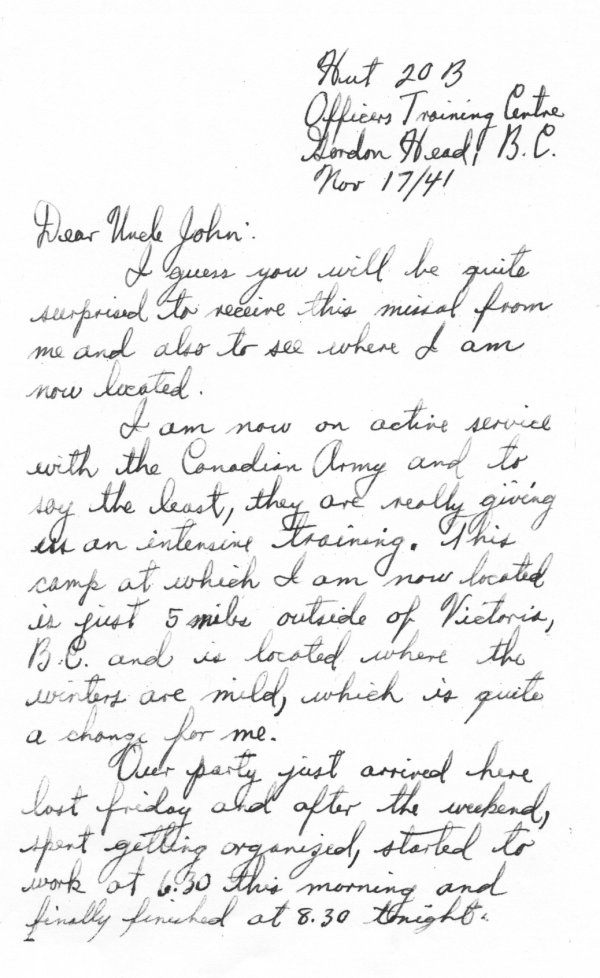 Hut 20 B
Officers Training Centre
Gordon Head, B.C.
Nov 17/41
Dear Uncle John:
I guess you will be quite
surprised to receive this missal from
me and also to see where I am
now located.
I am now on active service
with the Canadian Army and to
say the least, they are really giving
us an intensive training. This
camp at which I am now located
is just 5 miles outside of Victoria,
B.C. and is located where the
winters are mild, which is quite
a change for me.
Our party just arrived here
last friday and after the weekend,
spent getting organized, started to
work at 6.30 this morning and
finally finished at 8.30 tonight.